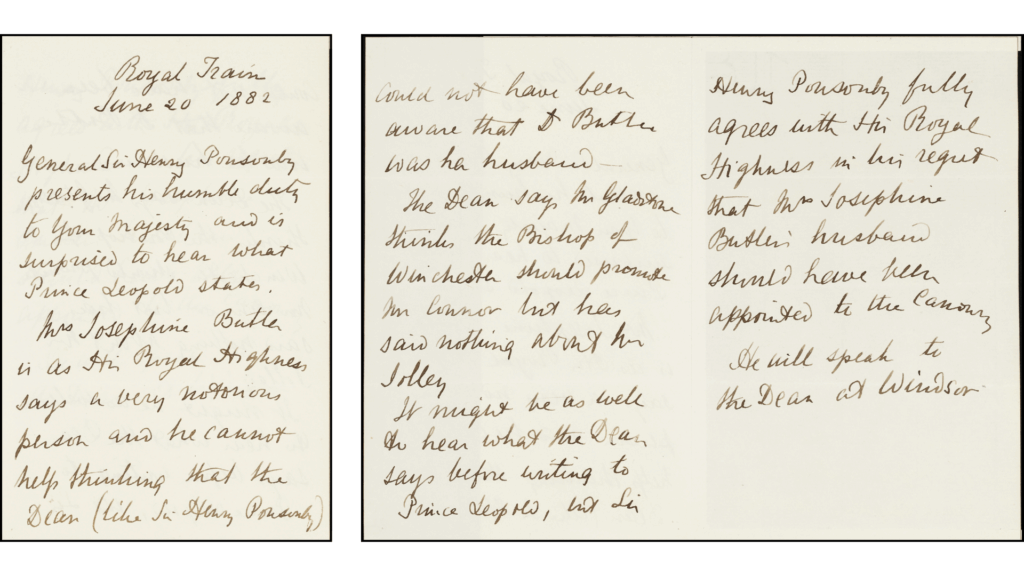 Royal Train
June 20 1882
General Sir Henry Ponsonby
presents his humble duty
to Your Majesty and is
surprised to hear what
Prince Leopold states.
Mrs Josephine Butler
is as His Royal Highness
says a very notorious
person and he cannot
help thinking that the
Dean (like Sir Henry Ponsonby)
could not have been
aware that Dr Butler
was her husband —
The Dean says Mr Gladstone
thinks the Bishop of
Winchester should promote
Mr Connor but has
said nothing about Mr
Jolley
It might be as well
to hear what the Dean
says before writing to
Prince Leopold, but Sir
Henry Ponsonby fully
agrees with His Royal
Highness in his regret
that Mrs Josephine
Butler's husband
should have been
appointed to the Canonry
He will speak to
the Dean at Windsor